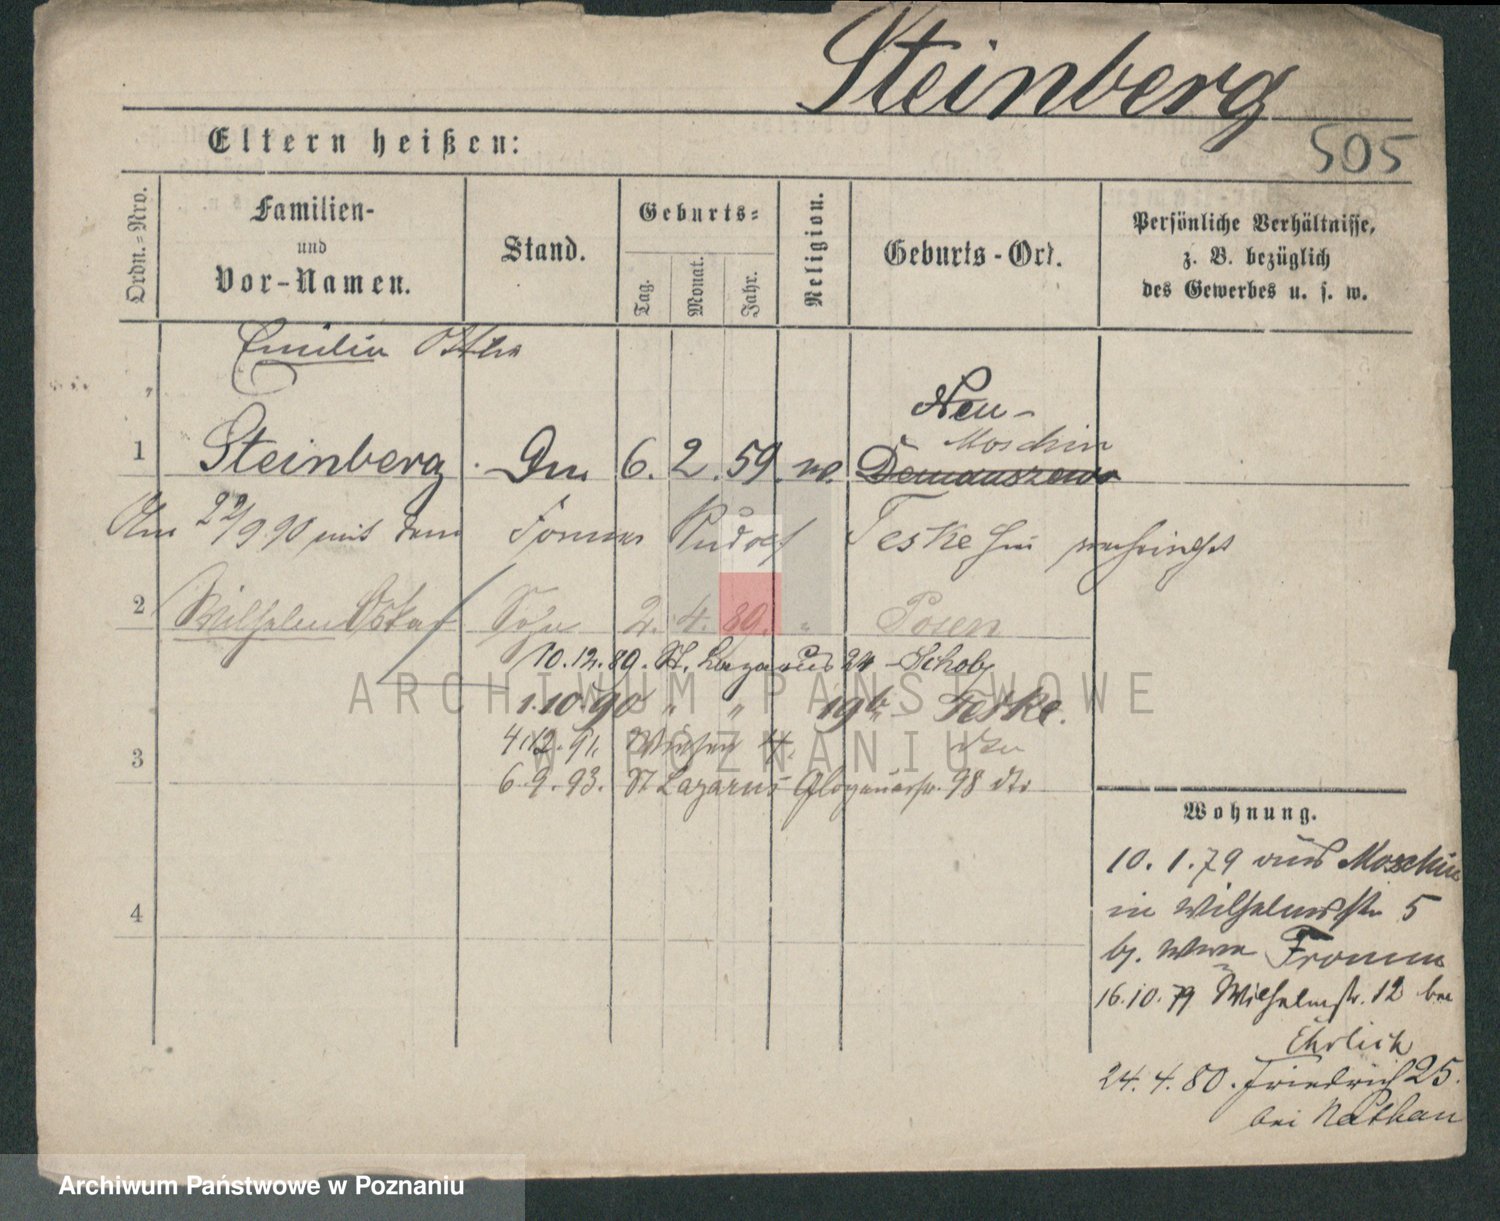 Steinberg
505
Eltern heißen:
Ordn.=Nro.
Familien-
und
Vor-Namen.
Stand.
Geburts=
Tag.
Monat.
Jahr.
Religion.
Geburts-Ort.
Persönliche Verhältnisse,
z. B. bezüglich
des Gewerbes u. s. w.
Emilie
Neu-
Moschin
1 Steinberg 6. 2. 59.
22/9 90 mit dem Rudolf Teske
2 Wilhelm Oskar Sohn 2. 4. 89. " Posen
10.12.89. St. Lazarus 24 Schob
1.10.90 " " 19b Teske.
4.12.91.
3
6.9.93. St Lazarus Glogauerstr. 98 dto
Wohnung.
10. 1. 79 aus Moschin
in Wilhelmsstr 5
b. Fromm
4
16.10.79 Wilhelmstr. 12 bei
Ehrlich
24. 4. 80. Friedrich 25.
bei Nathan
ARCHIWUM PAŃSTWOWE
W POZNANIU
Archiwum Państwowe w Poznaniu